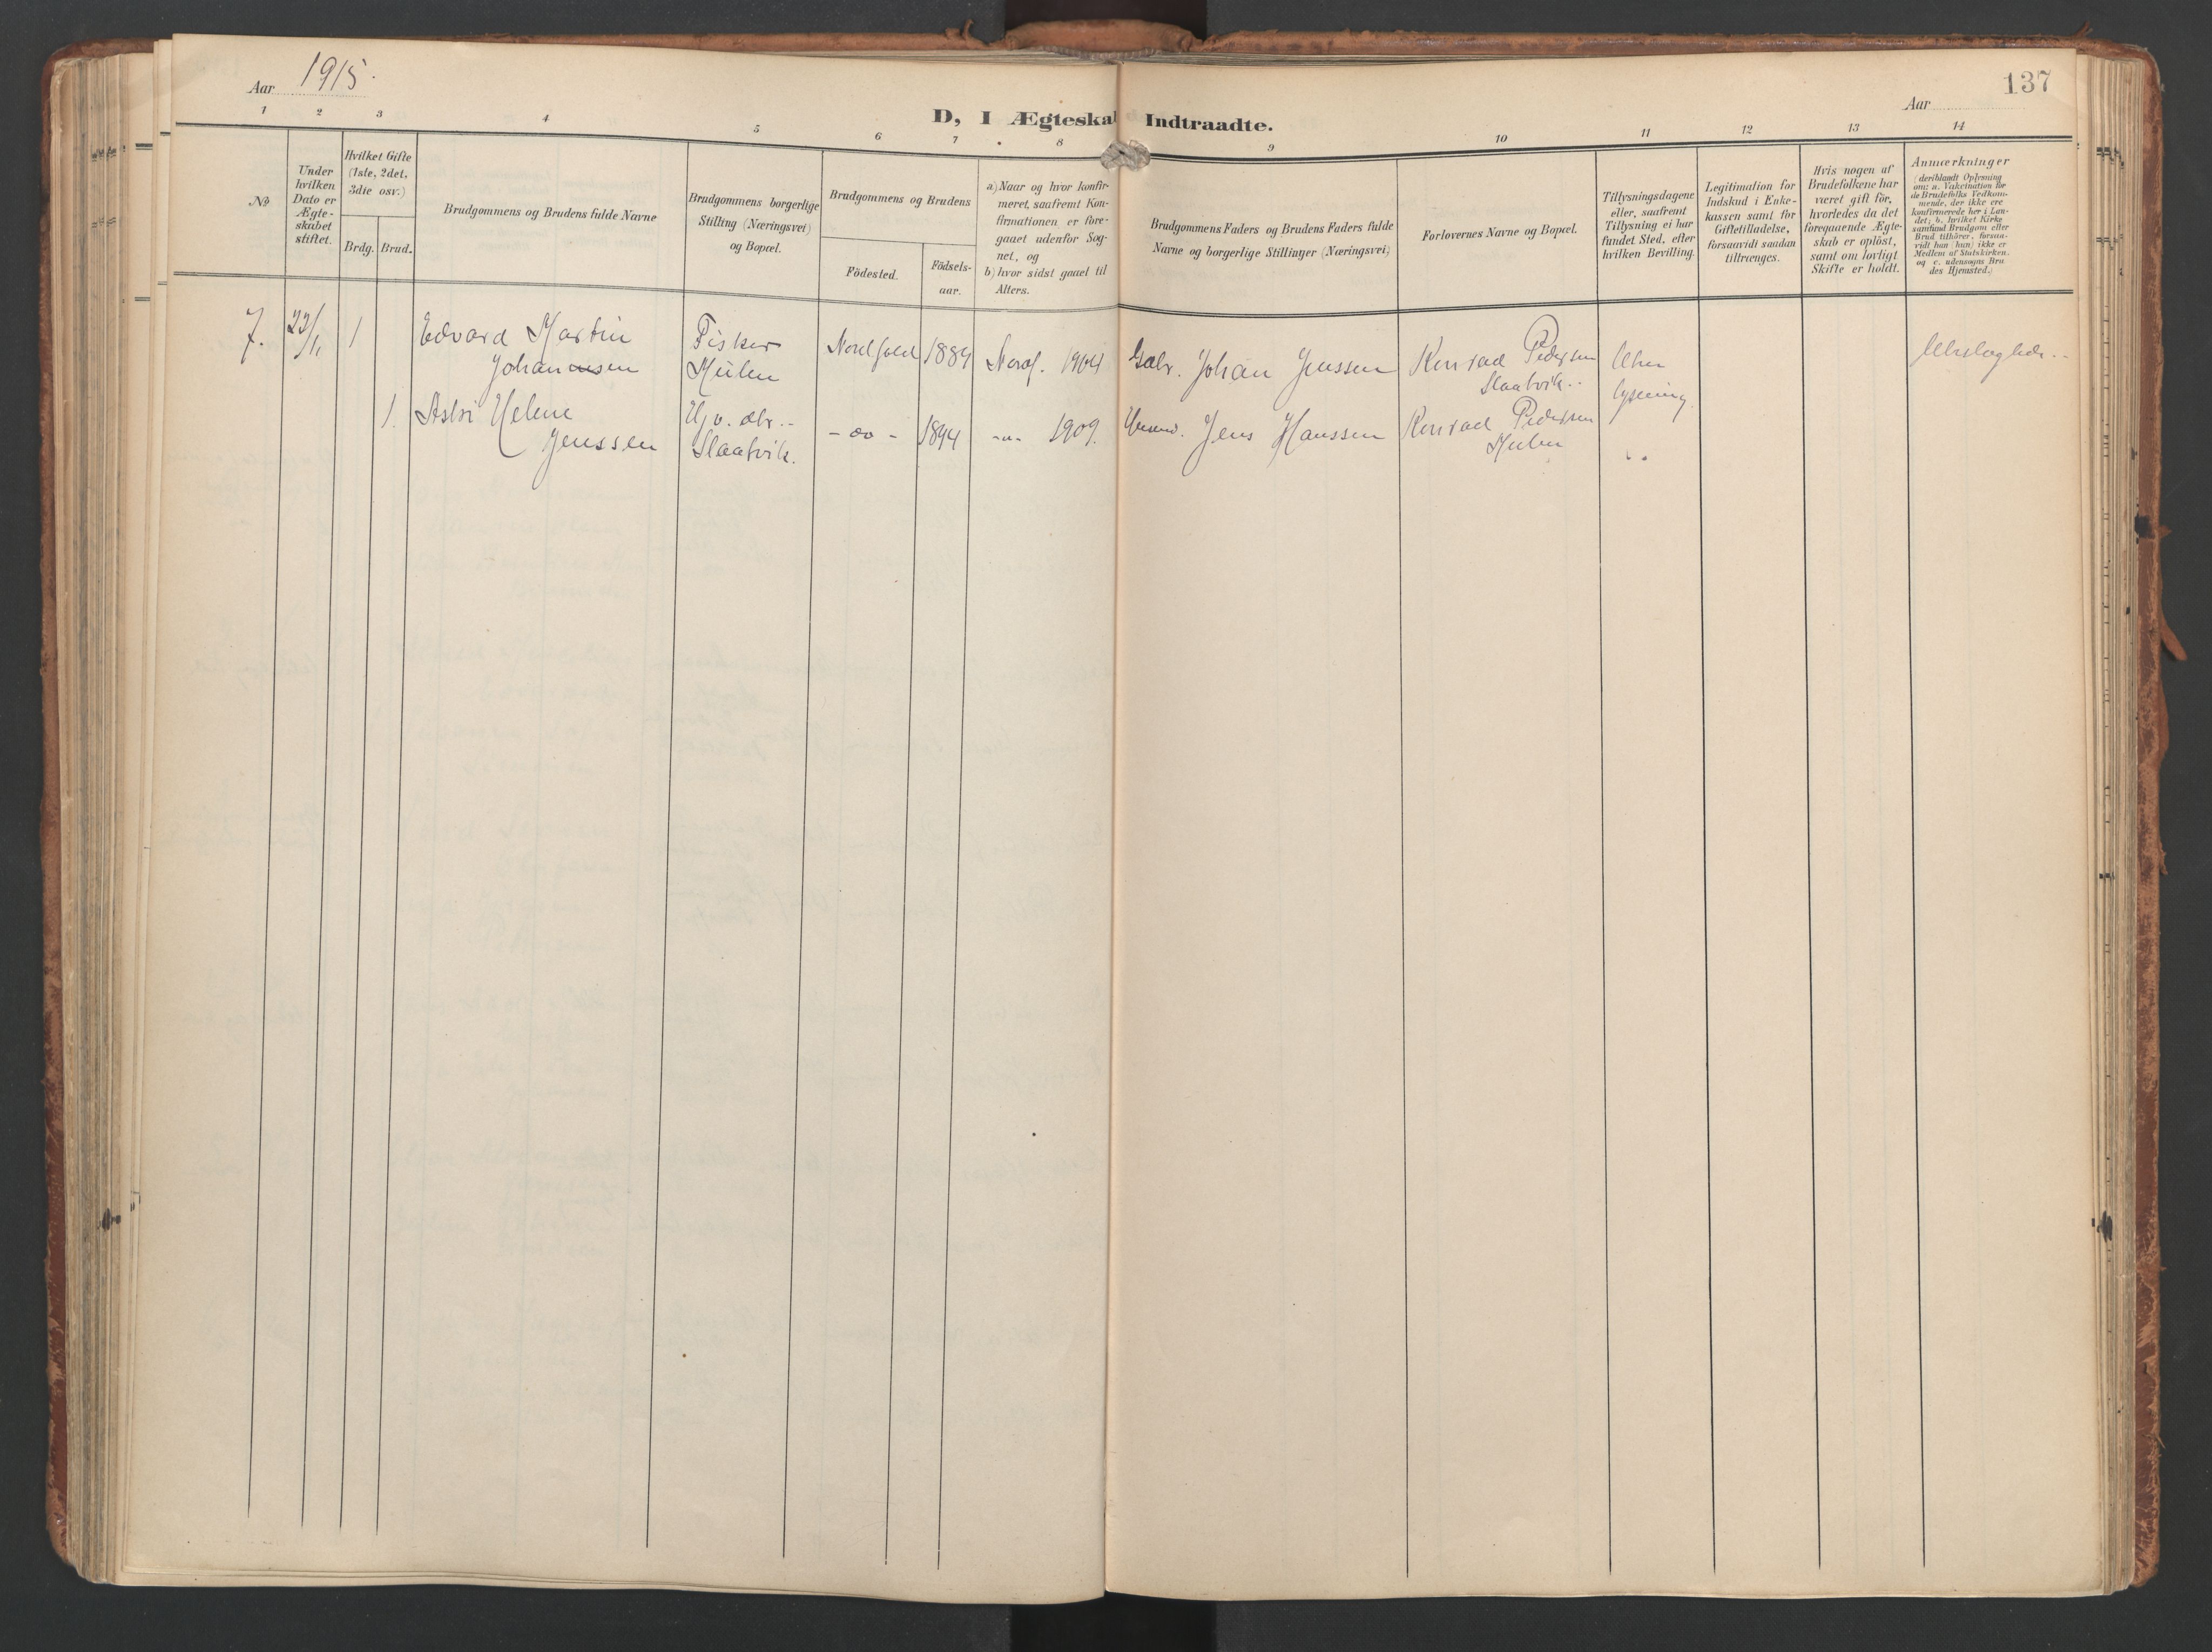 Aar 1915.
137
Aar
D, I Ægteskab Indtraadte.
1 2 3 4 5 6 7 8 9 10 11 12 13 14
No
Under
hvilken
Dato er
Ægte-
skabet
stiftet.
Hvilket Gifte
(1ste, 2det,
3die osv.)
Brdg. Brud.
Brudgommens og Brudens fulde Navne
Brudgommens borgerlige
Stilling (Næringsvei)
og Bopæl.
Brudgommens og Brudens
Födested.
Födsels-
aar.
a) Naar og hvor konfir-
meret, saafremt Kon-
firmationen er fore-
gaaet udenfor Sog-
net, og
b) hvor sidst gaaet til
Alters.
Brudgommens Faders og Brudens Faders fulde
Navne og borgerlige Stillinger (Næringsvei)
Forlovernes Navne og Bopæl.
Tillysningsdagene
eller, saafremt
Tillysning ei har
fundet Sted, efter
hvilken Bevilling.
Legitimation for
Indskud i Enke-
kassen samt for
Giftetilladelse,
forsaavidt saadan
tiltrænges.
Hvis nogen af
Brudefolkene har
været gift för,
hvorledes da det
foregaaende Ægte-
skab er oplöst,
samt om lovligt
Skifte er holdt.
Anmærkninger
(deriblandt Oplysning
om: a. Vakcination for
de Brudefolks Vedkom-
mende, der ikke ere
konfirmerede her i Lan-
det; b. hvilket Kirke
samfund Brudgom eller
Brud tilhörer, forsaa-
vidt han (hun) ikke er
Medlem af Statskirken,
og c. udensogns Bru
des Hjemsted.)
7. 22/11 1 Edvard Martin Fisker Nordfold 1889 Nordf. 1904 Gbr. Johan Jenssen Konrad Pedersen Uten
Johansen Mulen Slaatvik. lysning
1. Astri Helene Hjv. dtr. - do - 1894 -"- 1909. Jens Hanssen Konrad Pedersen
Jenssen Slaatvik. Mulen